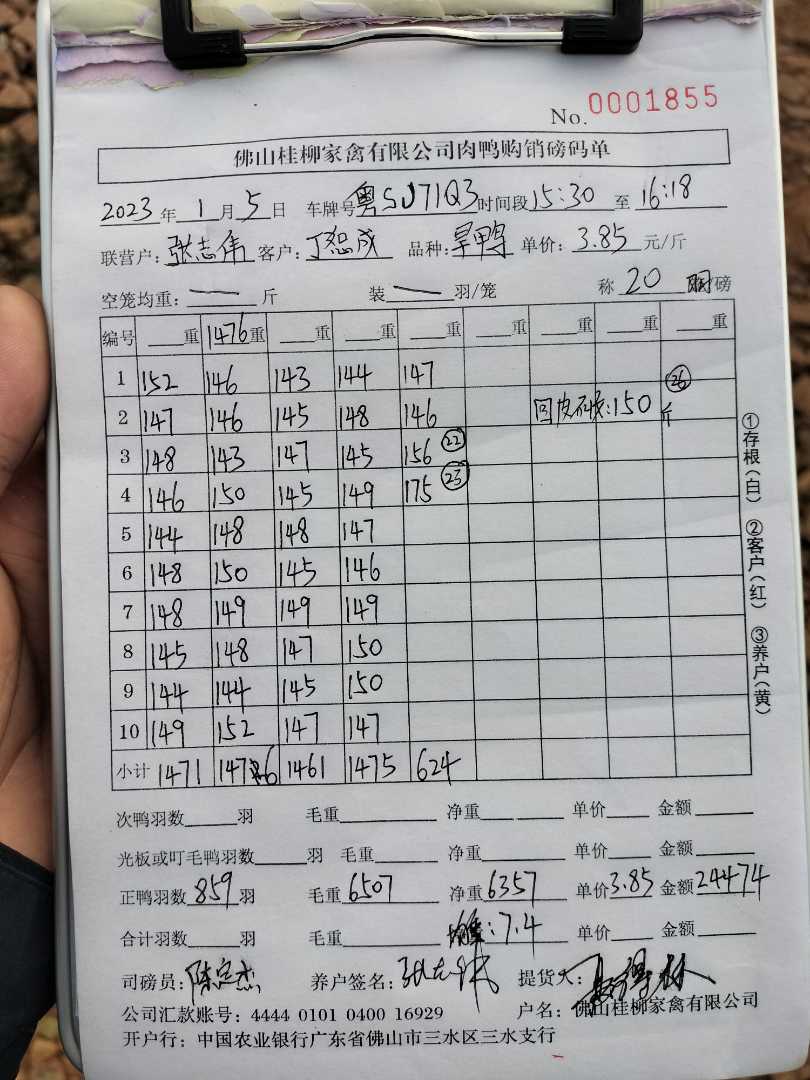 No. 0001855
佛山桂柳家禽有限公司肉鸭购销磅码单
2023年1月5日 车牌号粤SU71Q3时间段15:30至16:18
联营户:张志伟 客户:丁恕成 品种:旱鸭 单价:3.85元/斤
空笼均重:一斤 装一羽/笼 称20磅
编号 重 1476重 重 重 重 重 重 重 重
1 152 146 143 144 147
2 147 146 145 148 146 :150斤 26
3 148 143 147 145 156 22
4 146 150 145 149 175 23
5 144 148 148 147
6 148 150 145 146
7 148 149 149 149
8 145 148 147 150
9 144 144 145 150
10 149 152 147 147
小计 1471 1476 1461 1475 624
次鸭羽数 羽 毛重 净重 单价 金额
光板或叮毛鸭羽数 羽 毛重 净重 单价 金额
正鸭羽数859羽 毛重6507 净重6357 单价3.85 金额24474
合计羽数 羽 毛重 :7.4 单价 金额
司磅员: 养户签名: 提货人:
公司汇款账号:4444 0101 0400 16929 户名:佛山桂柳家禽有限公司
开户行:中国农业银行广东省佛山市三水区三水支行
①存根(白) ②客户(红) ③养户(黄)